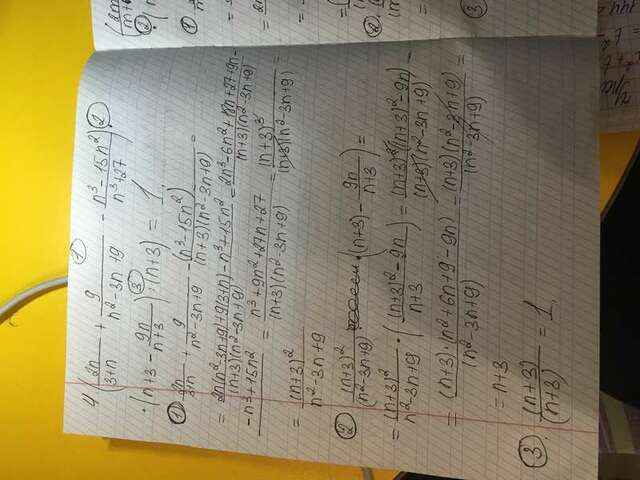 ①
4. (2n/(3+n) + 9/(n²-3n+9) - (n³-15n²)/(n³+27)) ②
·(n+3 - 9n/(n+3)) ③ : (n+3) = 1.
① 2n/(3+n) + 9/(n²-3n+9) - (n³-15n²)/((n+3)(n²-3n+9)) =
= (2n(n²-3n+9)+9(3+n)-n³+15n²)/((n+3)(n²-3n+9)) = (2n³-6n²+18n+27+9n-
-n³+15n²)/((n+3)(n²-3n+9)) = (n³+9n²+27n+27)/((n+3)(n²-3n+9)) = (n+3)³/((n+3)(n²-3n+9)) =
= (n+3)²/(n²-3n+9)
② (n+3)²/(n²-3n+9) · ((n+3) - 9n/(n+3)) =
= (n+3)²/(n²-3n+9) · (((n+3)²-9n)/(n+3)) = (n+3)²((n+3)²-9n)/((n+3)(n²-3n+9)) =
= (n+3)·(n²+6n+9-9n)/(n²-3n+9) = (n+3)(n²-3n+9)/(n²-3n+9) =
= n+3
③. (n+3)/(n+3) = 1.